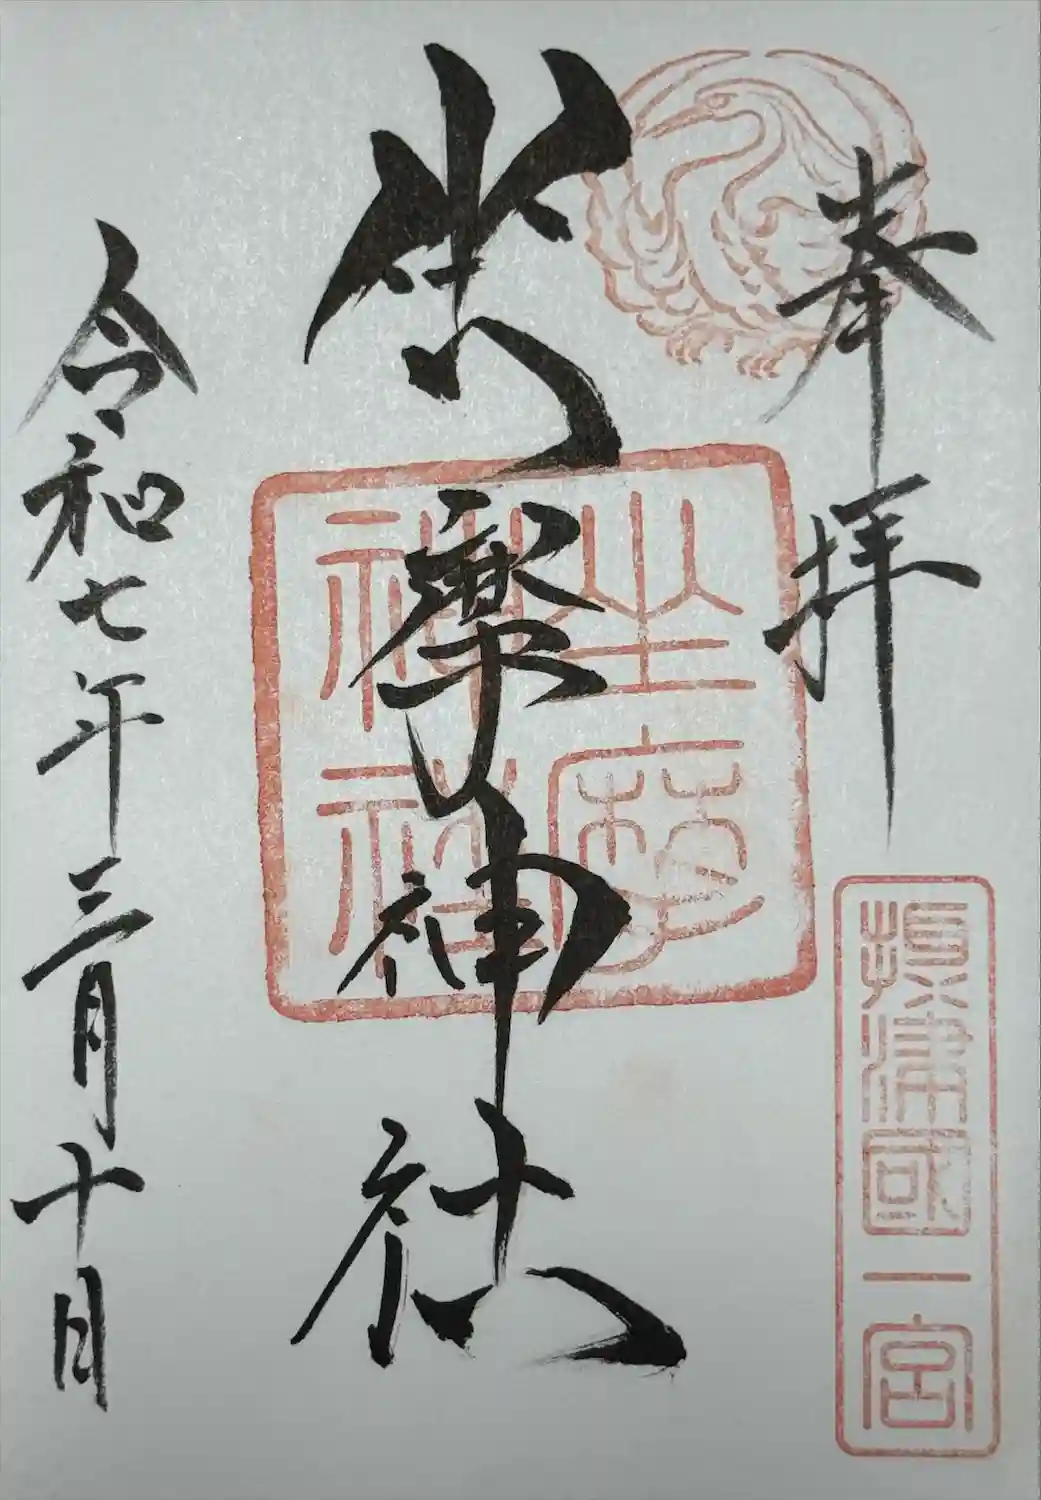 奉拝
摂津國一宮
坐摩神社
坐摩神社
令和七年三月十日